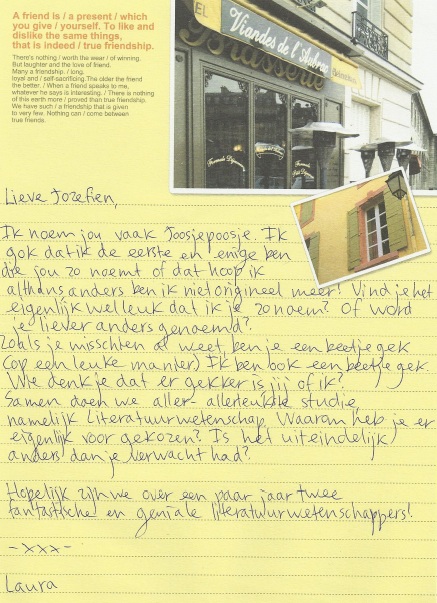 A friend is / a present / which
you give / yourself. To like and
dislike the same things,
that is indeed / true friendship.
There's nothing / worth the wear / of winning.
But laughter and the love of friend.
Many a friendship. / long.
loyal and / self-sacrificing.The older the friend
the better. / When a friend speaks to me,
whatever he says is interesting. / There is nothing
of this earth more / proved than true friendship.
We have such / a friendship that is given
to very few. Nothing can / come between
true friends.
EL
Viandes de l'Aubrac
Brasserie
Lieve Jozefien,
Ik noem jou vaak Joosjepoosje. Ik
gok dat ik de eerste en enige ben
die jou zo noemt of dat hoop ik
althans anders ben ik niet origineel meer! Vind je het
eigenlijk wel leuk dat ik je zo noem? Of word
je liever anders genoemd?
Zoals je misschien al weet ben je een beetje gek
(op een leuke manier) Ik ben ook een beetje gek.
Wie denk je dat er gekker is jij of ik?
Samen doen we aller- allerleukste studie
namelijk Literatuurwetenschap. Waarom heb je er
eigenlijk voor gekozen? Is het uiteindelijk
anders dan je verwacht had?
Hopelijk zijn we over een paar jaar twee
fantastische en geniale literatuurwetenschappers!
-xxx-
Laura